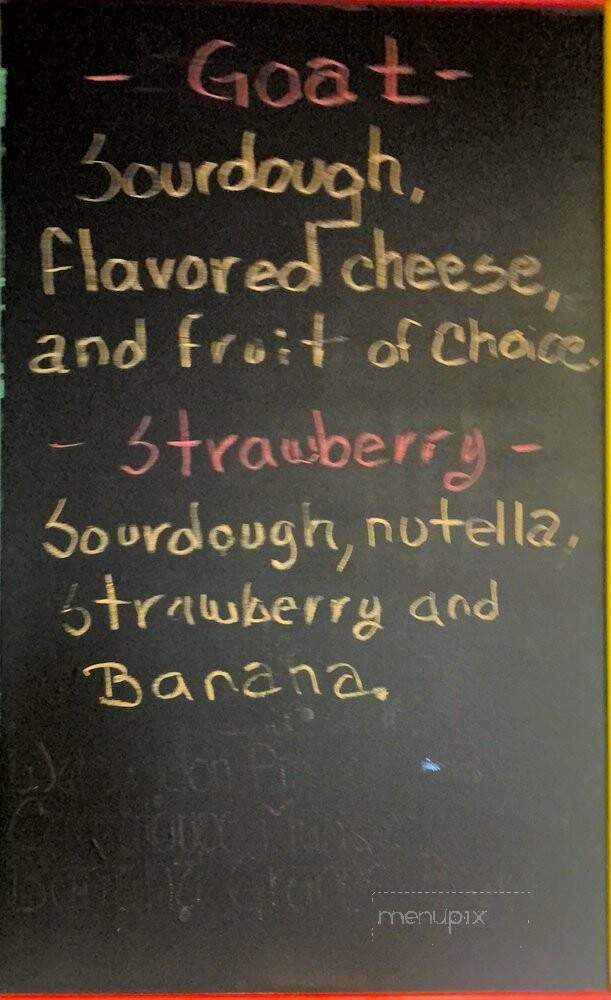 - Goat -
Sourdough,
flavored cheese,
and fruit of Choice.
- Strawberry -
Sourdough, nutella,
Strawberry and
Banana.
menupix